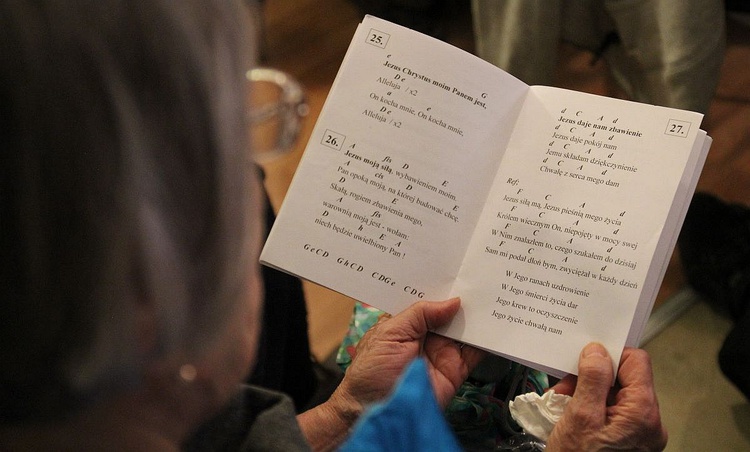 25.
e
Jezus Chrystus moim Panem jest,
D e G
Alleluja / x2
a e
On kocha mnie, On kocha mnie,
D e
Alleluja / x2
26.
A fis D E
Jezus moją siłą, wybawieniem moim.
A cis D E
Pan opoką moją, na której budować chcę.
D
Skałą, rogiem zbawienia mego,
A fis
warownią moją jest - wołam:
D h E A
niech będzie uwielbiony Pan !
G e C D G h C D C D G e C D G
27.
d C A d
Jezus daje nam zbawienie
d C A d
Jezus daje pokój nam
d C A d
Jemu składam dziękczynienie
d C A d
Chwałę z serca mego dam
Ref:
F C A d
Jezus siłą mą, Jezus pieśnią mego życia
F C A d
Królem wiecznym On, niepojęty w mocy swej
F C A d
W Nim znalazłem to, czego szukałem do dzisiaj
F C A d
Sam mi podał dłoń bym, zwyciężał w każdy dzień
W Jego ranach uzdrowienie
W Jego śmierci życia dar
Jego krew to oczyszczenie
Jego życie chwałą nam